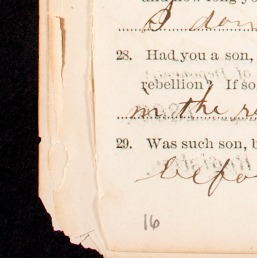 28. Had you a son,
rebellion? If so
in the
29. Was such son, b
befo
16